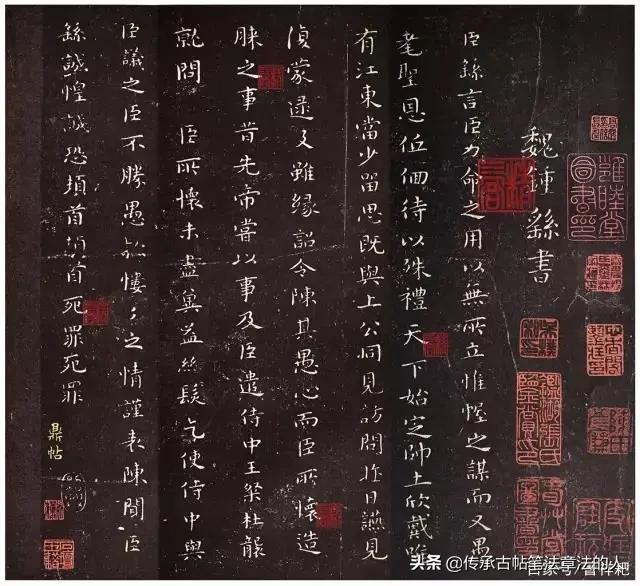 魏鍾繇書
臣繇言臣力命之用以無所立惟幄之謀而又愚
耄聖恩低佪待以殊禮天下始定師士欣戴唯
有江東當少留思既與上公同見訪問昨日讌見
復蒙逮及雖緣詔令陳其愚心而臣所懷造
膝之事昔先帝嘗以事及臣遣侍中王粲杜襲
就問 臣所懷未盡冀益絲髮乞使侍中與
臣議之臣不勝愚款慺々之情謹表陳聞臣
繇誠惶誠恐頓首頓首死罪死罪
鼎帖
头条 @传承古帖笔法章法的人